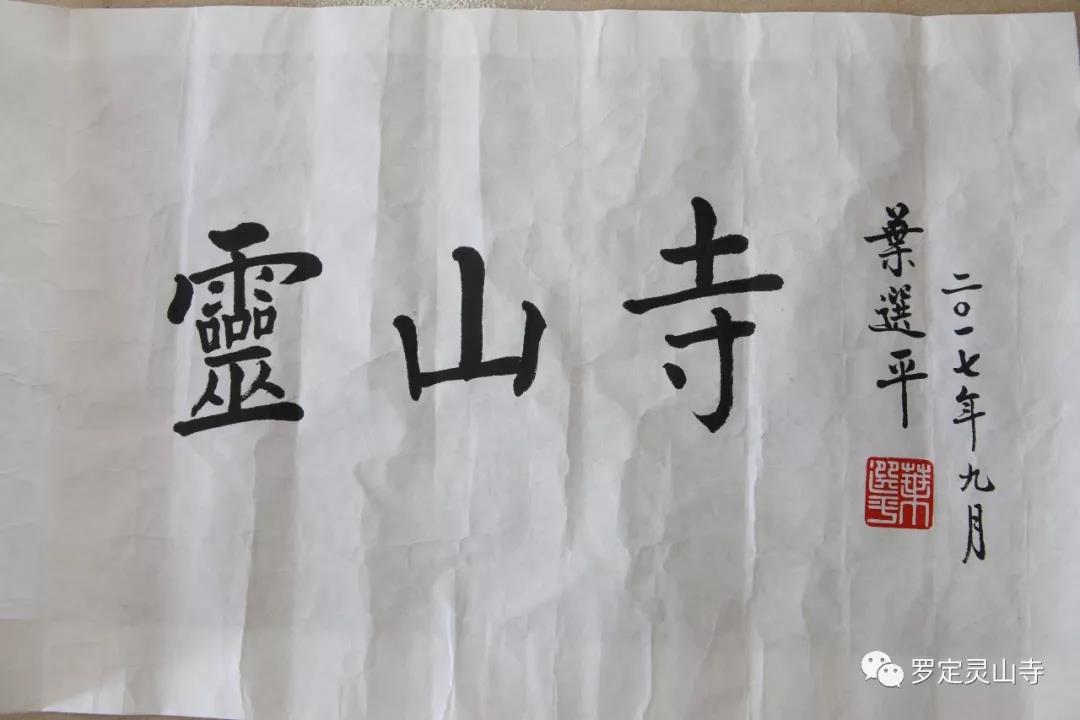 靈山寺
葉選平
二〇一七年九月
葉選平
罗定灵山寺